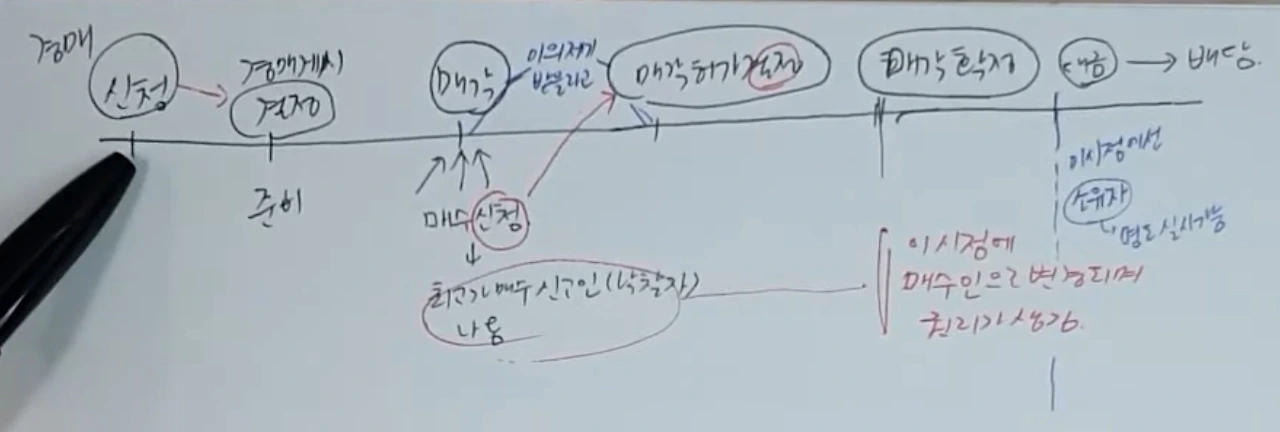 경매
신청
경매개시
결정
매각
이의제기
매각허가결정
매각확정
대금
배당.
준비
매수신청
최고가매수신고인(낙찰자)
나옴
이시점에선
소유자
명도실시가능
이시점에
매수인으로변경되며
권리가생김.